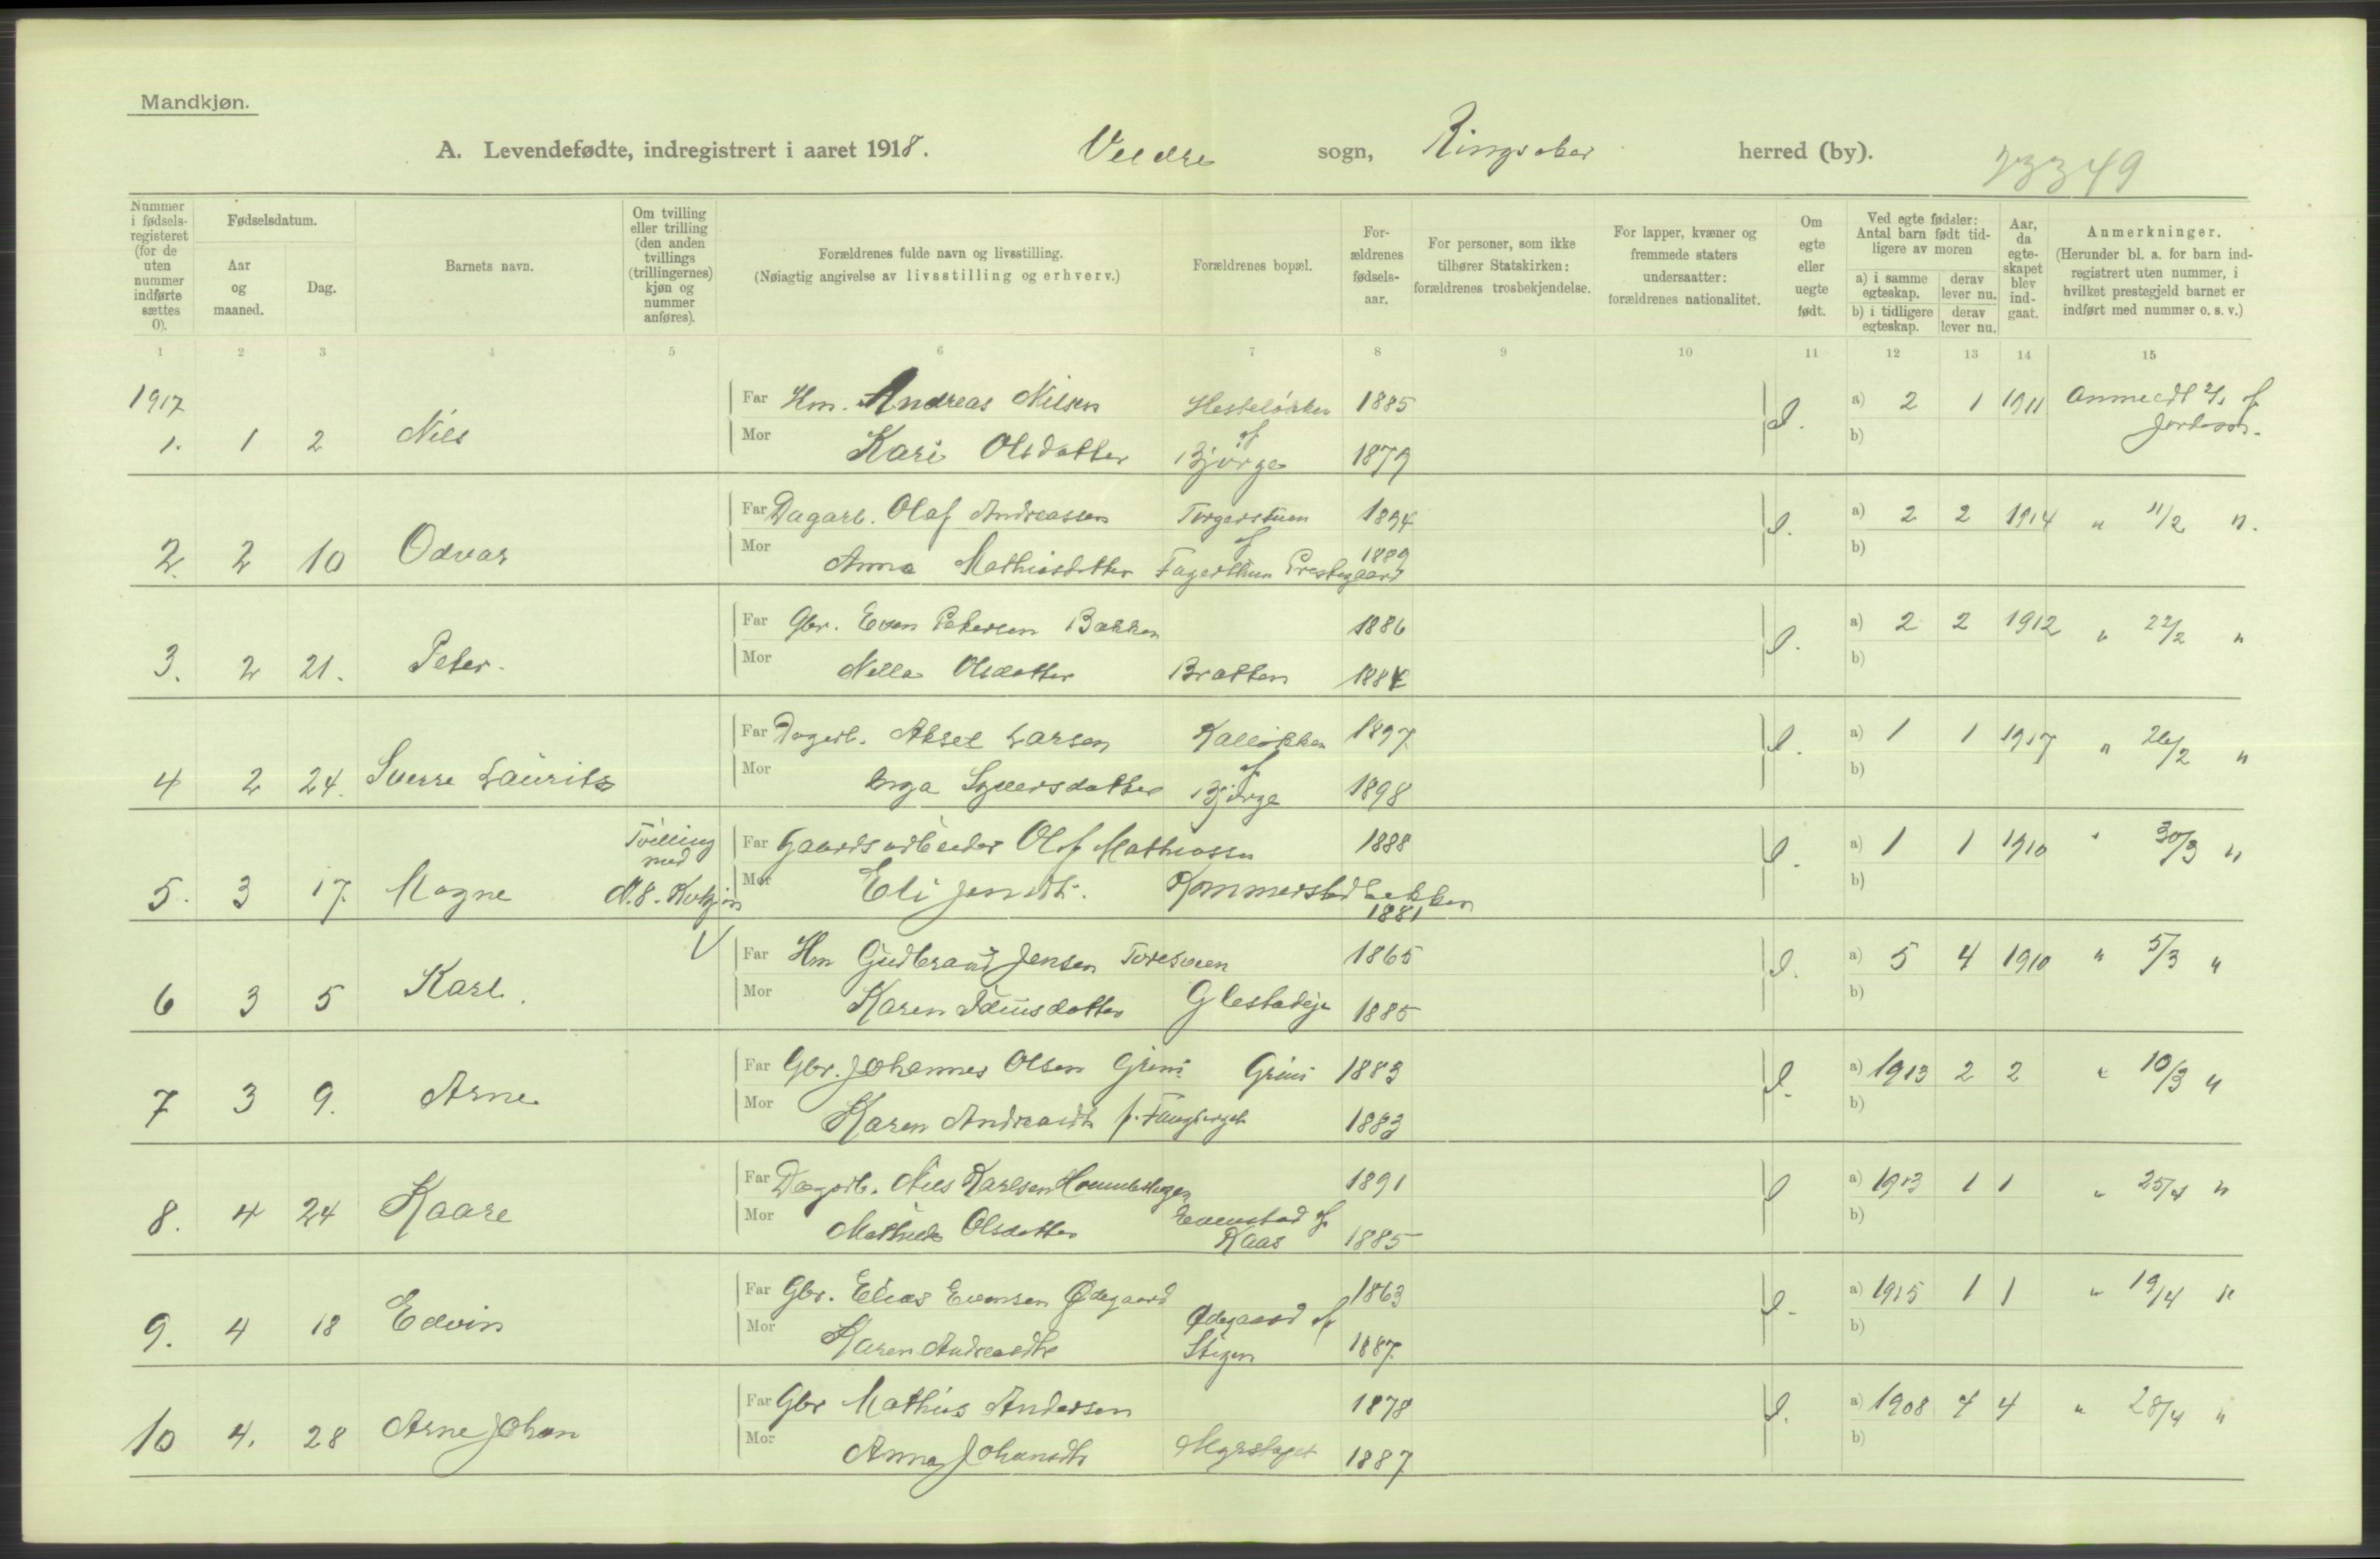 Mandkjøn.
A. Levendefødte, indregistrert i aaret 1918. Veldre sogn, Ringsaker herred (by). 23349
Nummer i fødselsregisteret (for de uten nummer indførte sættes 0).
Fødselsdatum.
Aar og maaned.
Dag.
Barnets navn.
Om tvilling eller trilling (den anden tvillings (trillingernes) kjøn og nummer anføres).
Forældrenes fulde navn og livsstilling.
(Nøiagtig angivelse av livsstilling og erhverv.)
Forældrenes bopæl.
Forældrenes fødselsaar.
For personer, som ikke tilhører Statskirken: forældrenes trosbekjendelse.
For lapper, kvæner og fremmede staters undersaatter: forældrenes nationalitet.
Om egte eller uegte født.
Ved egte fødsler: Antal barn født tidligere av moren
a) i samme egteskap. derav lever nu.
b) i tidligere egteskap. derav lever nu.
Aar, da egteskapet blev indgaat.
Anmerkninger.
(Herunder bl. a. for barn indregistrert uten nummer, i hvilket prestegjeld barnet er indført med nummer o. s. v.)
1 2 3 4 5 6 7 8 9 10 11 12 13 14 15
1917
Far Hm. Andreas Nilsen Hesteløkken 1885 a) 2 1 1911 Anmeldt af
1. 1 2 Nils Mor Kari Olsdatter af Bjørge 1879 b) Jordmor.
Far Dagarb. Olaf Andreassen Torgerstuen 1894 a) 2 2 1914 " 11/2 ".
2. 2 10 Odvar Mor Anna Mathiasdatter af Fagerthun Prestegaard 1889 b)
Far Gbr. Even Petersen Bakken 1886 a) 2 2 1912 " 22/2 "
3. 2 21. Peter. Mor Nella Olsdatter Bratten 1884 b)
Far Dagarb. Aksel Larsen Kalløkken 1897 a) 1 1 1917 " 26/2 "
4 2 24. Sverre Laurits Mor Inga Syversdatter af Bjørge 1898 b)
Tvilling med
Far Gaardsarbeider Olaf Mathiassen 1888 a) 1 1 1910 " 30/3 "
5. 3 17. Magne N. 8. Kvkjøn Mor Eli Jensdtr. Kommerstadbakken 1881 b)
Far Hm Gudbrand Jensen Toresveen 1865 a) 5 4 1910 " 5/3 "
6 3 5 Karl. Mor Karen Glestadeje 1885 b)
Far Gbr. Johannes Olsen Grini Grini 1883 a) 1913 2 2 " 10/3 "
7 3 9. Arne Mor Karen Andreasdtr f. Fangberget 1883 b)
Far Dagarb. Nils Karlsen 1891 a) 1913 1 1 " 25/4 "
8. 4 24 Kaare Mor Mathilde Olsdatter Evenstad af Kaas 1885 b)
Far Gbr. Elias Evensen Ødegaard 1863 a) 1915 1 1 " 19/4 "
9. 4 18 Edvin Mor Karen Andreasdtr Ødegaard af Stigen 1887 b)
Far Gbr Mathias Andersen 1878 a) 1908 4 4 " 28/4 "
10 4. 28 Arne Johan Mor Anna Johansdtr 1887 b)